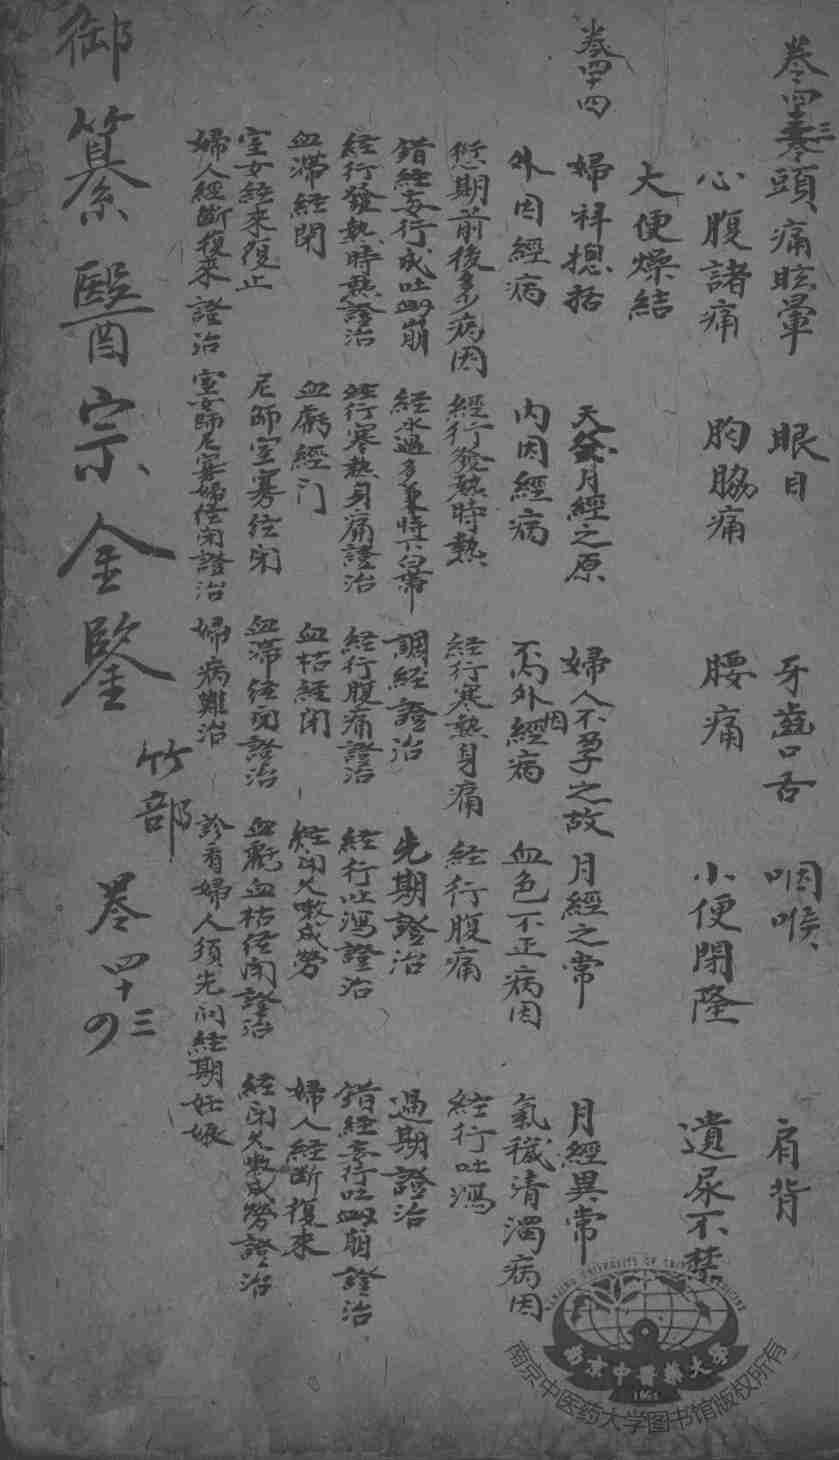 卷四十三 頭痛眩暈 眼目 牙齒口舌 咽喉 肩背
心腹諸痛 胸脇痛 腰痛 小便閉隆 遺尿不禁
大便燥結
卷四十四 婦科揔括 天癸月經之原 婦人不孕之故 月經之常 月經異常
外因經病 內因經病 不內外因經病 血色不正病因 氣穢清濁病因
愆期前後多少病因 經行發熱時熱 經行寒熱身痛 經行腹痛 經行吐瀉
錯經妄行成吐血崩 經水過多兼時下白帶 調經證治 先期證治 過期證治
經行發熱時熱證治 經行寒熱身痛證治 經行腹痛證治 經行吐瀉證治 錯經妄行吐血崩證治
血滯經閉 血虧經门 血枯經閉 經闭久嗽成勞 婦人經斷復來
室女經來復止 尼師室寡經闭 血滯經閉證治 血虧血枯經闭證治 經闭久嗽成勞證治
婦人經斷復來證治 室女師尼寡婦經闭證治 婦病難治 診看婦人須先问經期妊娠
御纂醫宗金鑒 竹部 卷四十三
四
NANJING UNIVERSITY OF CHINESE MEDICINE
南京中醫藥大學
1954
南京中医药大学图书馆版权所有